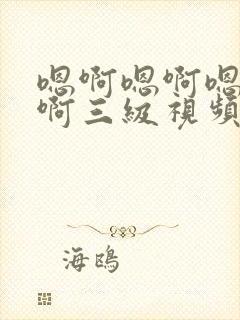 嗯啊嗯啊嗯
啊三级視頻
海鴎